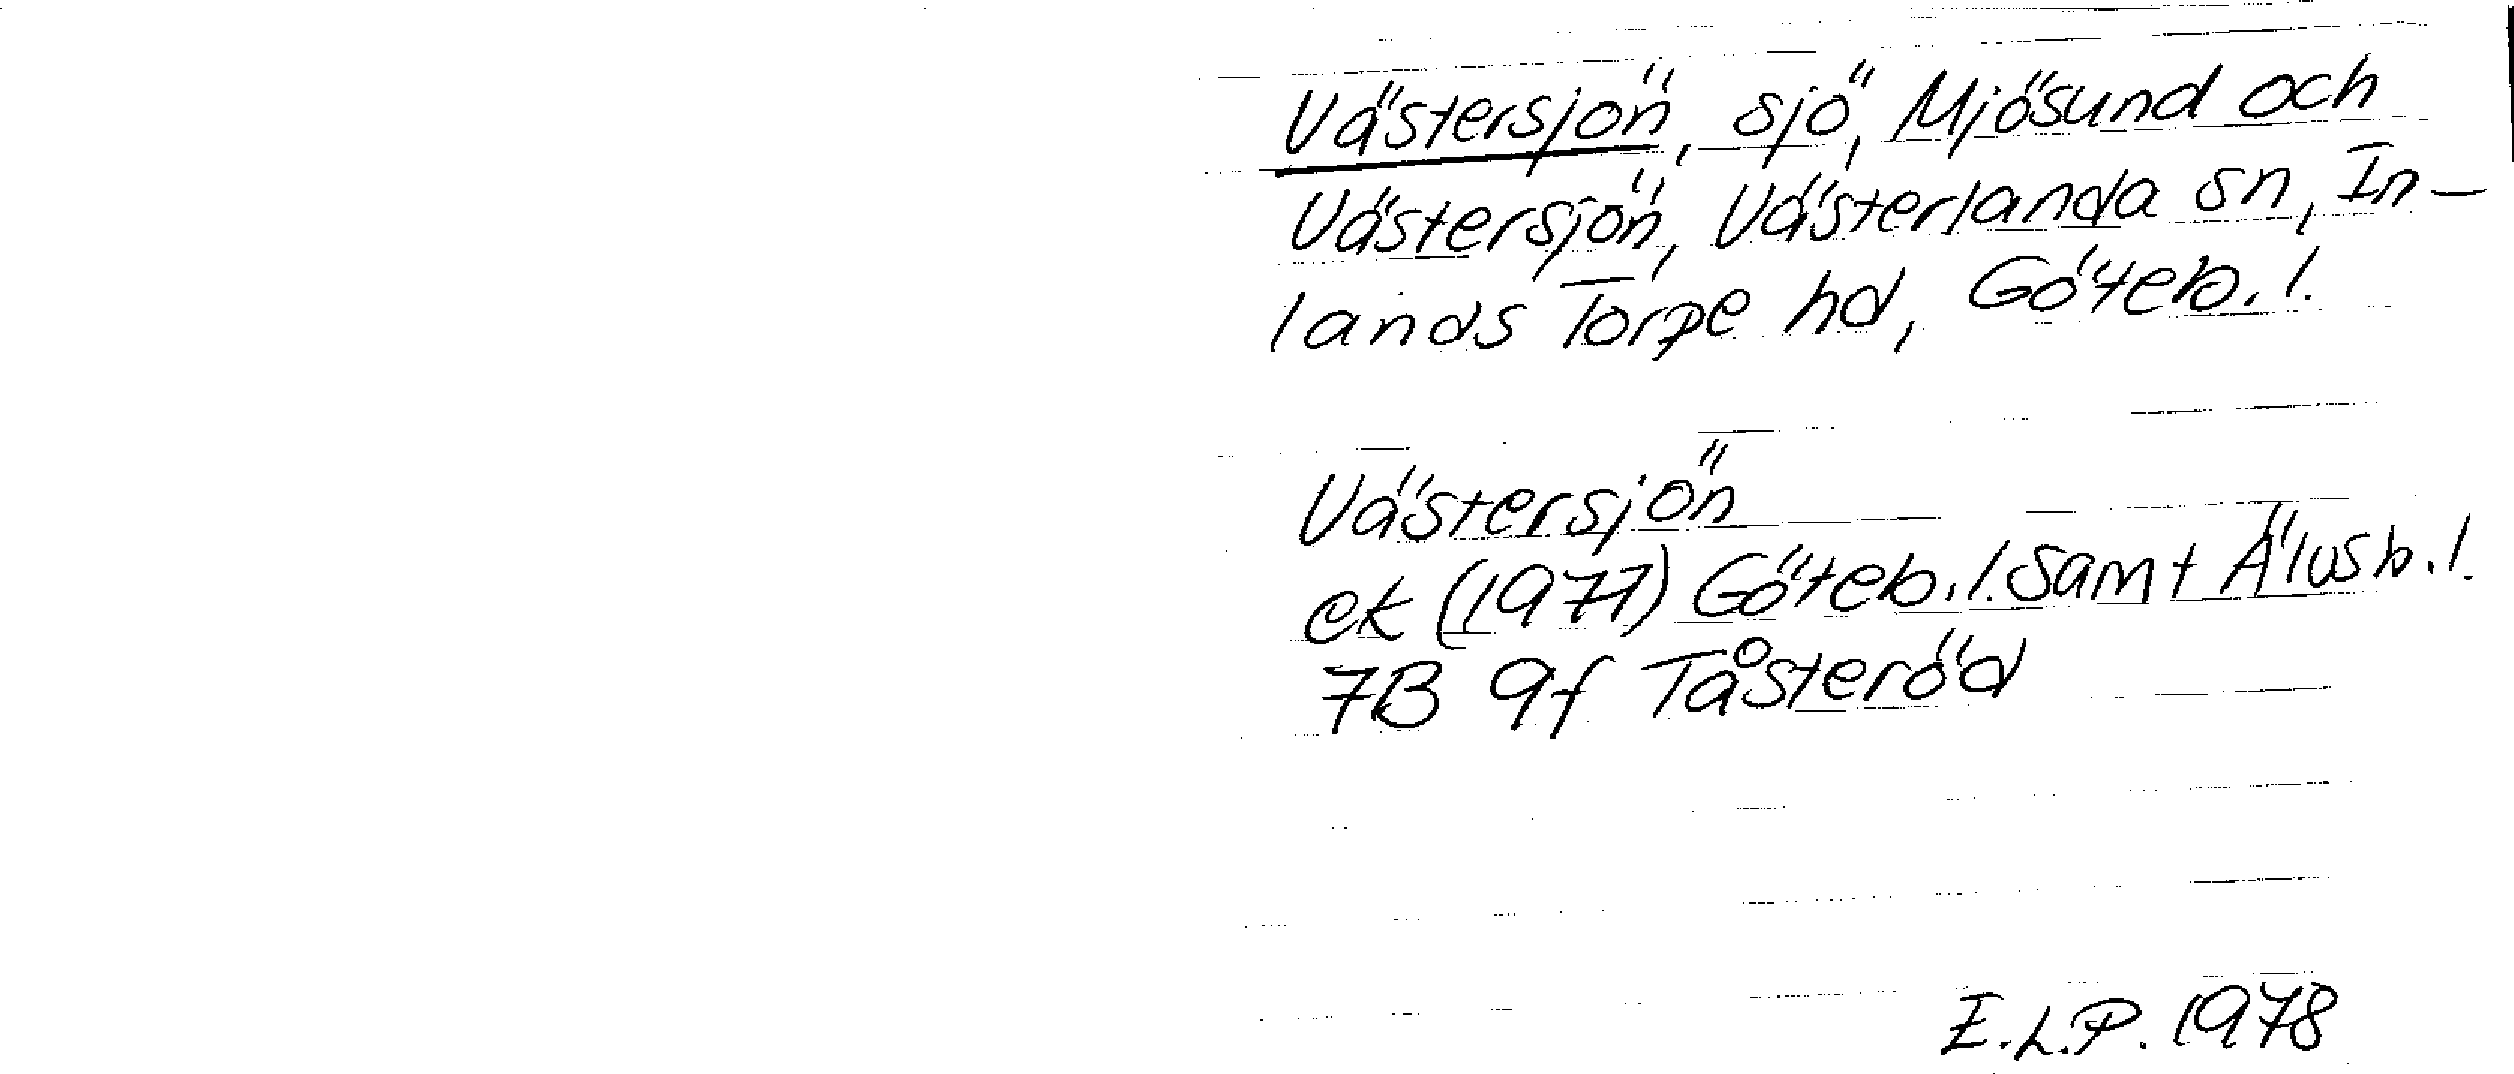 Västersjön, sjö, Mjösund och
Västersjön, Västerlanda sn, In-
lands Torpe hd, Göteb.l.
Västersjön
ek (1977) Göteb.l. samt Älvsb.l.
7B 9f Tåsteröd
E.L.P. 1978